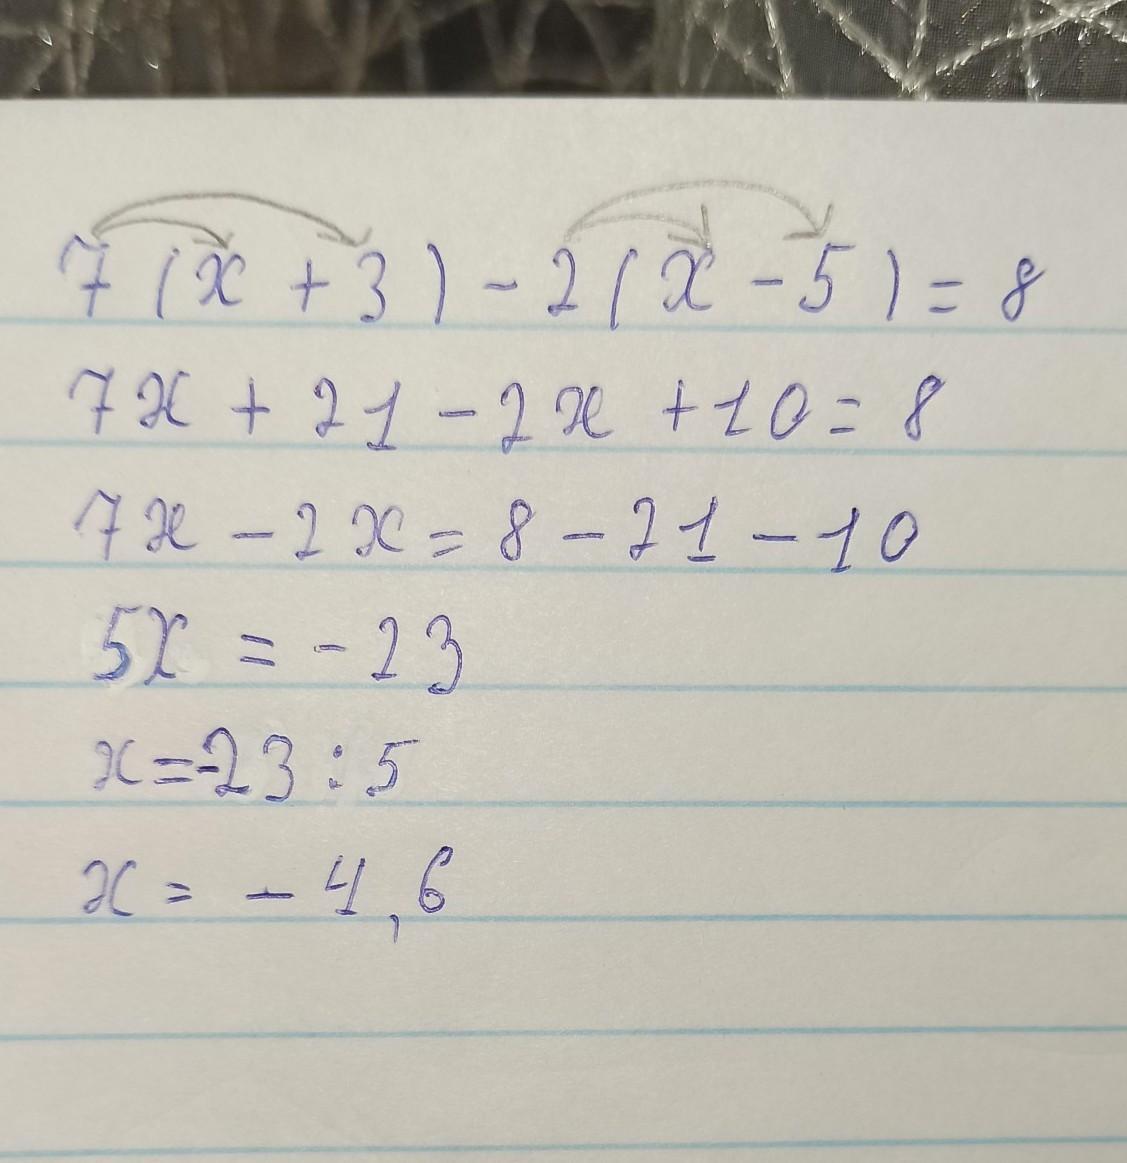 7(x + 3) - 2(x - 5) = 8
7x + 21 - 2x + 10 = 8
7x - 2x = 8 - 21 - 10
5x = - 23
x = -23 : 5
x = - 4,6